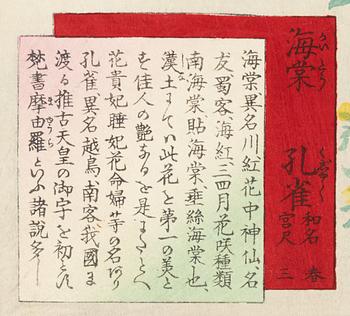 海棠
かいどう
孔雀
くじやく
和名 宮尺
春三
海棠異名川紅花中神仙名
友蜀客海紅三四月花咲種類
南海棠貼海棠垂絲海棠也
漢土にてハ此花を第一の美と
を佳人の艶あるを是にたとへ
花貴妃睡妃花命婦等の名あり
孔雀異名越鳥南客我國ま
渡る推古天皇の御宇を初とす
梵書摩由羅といふ諸説多し